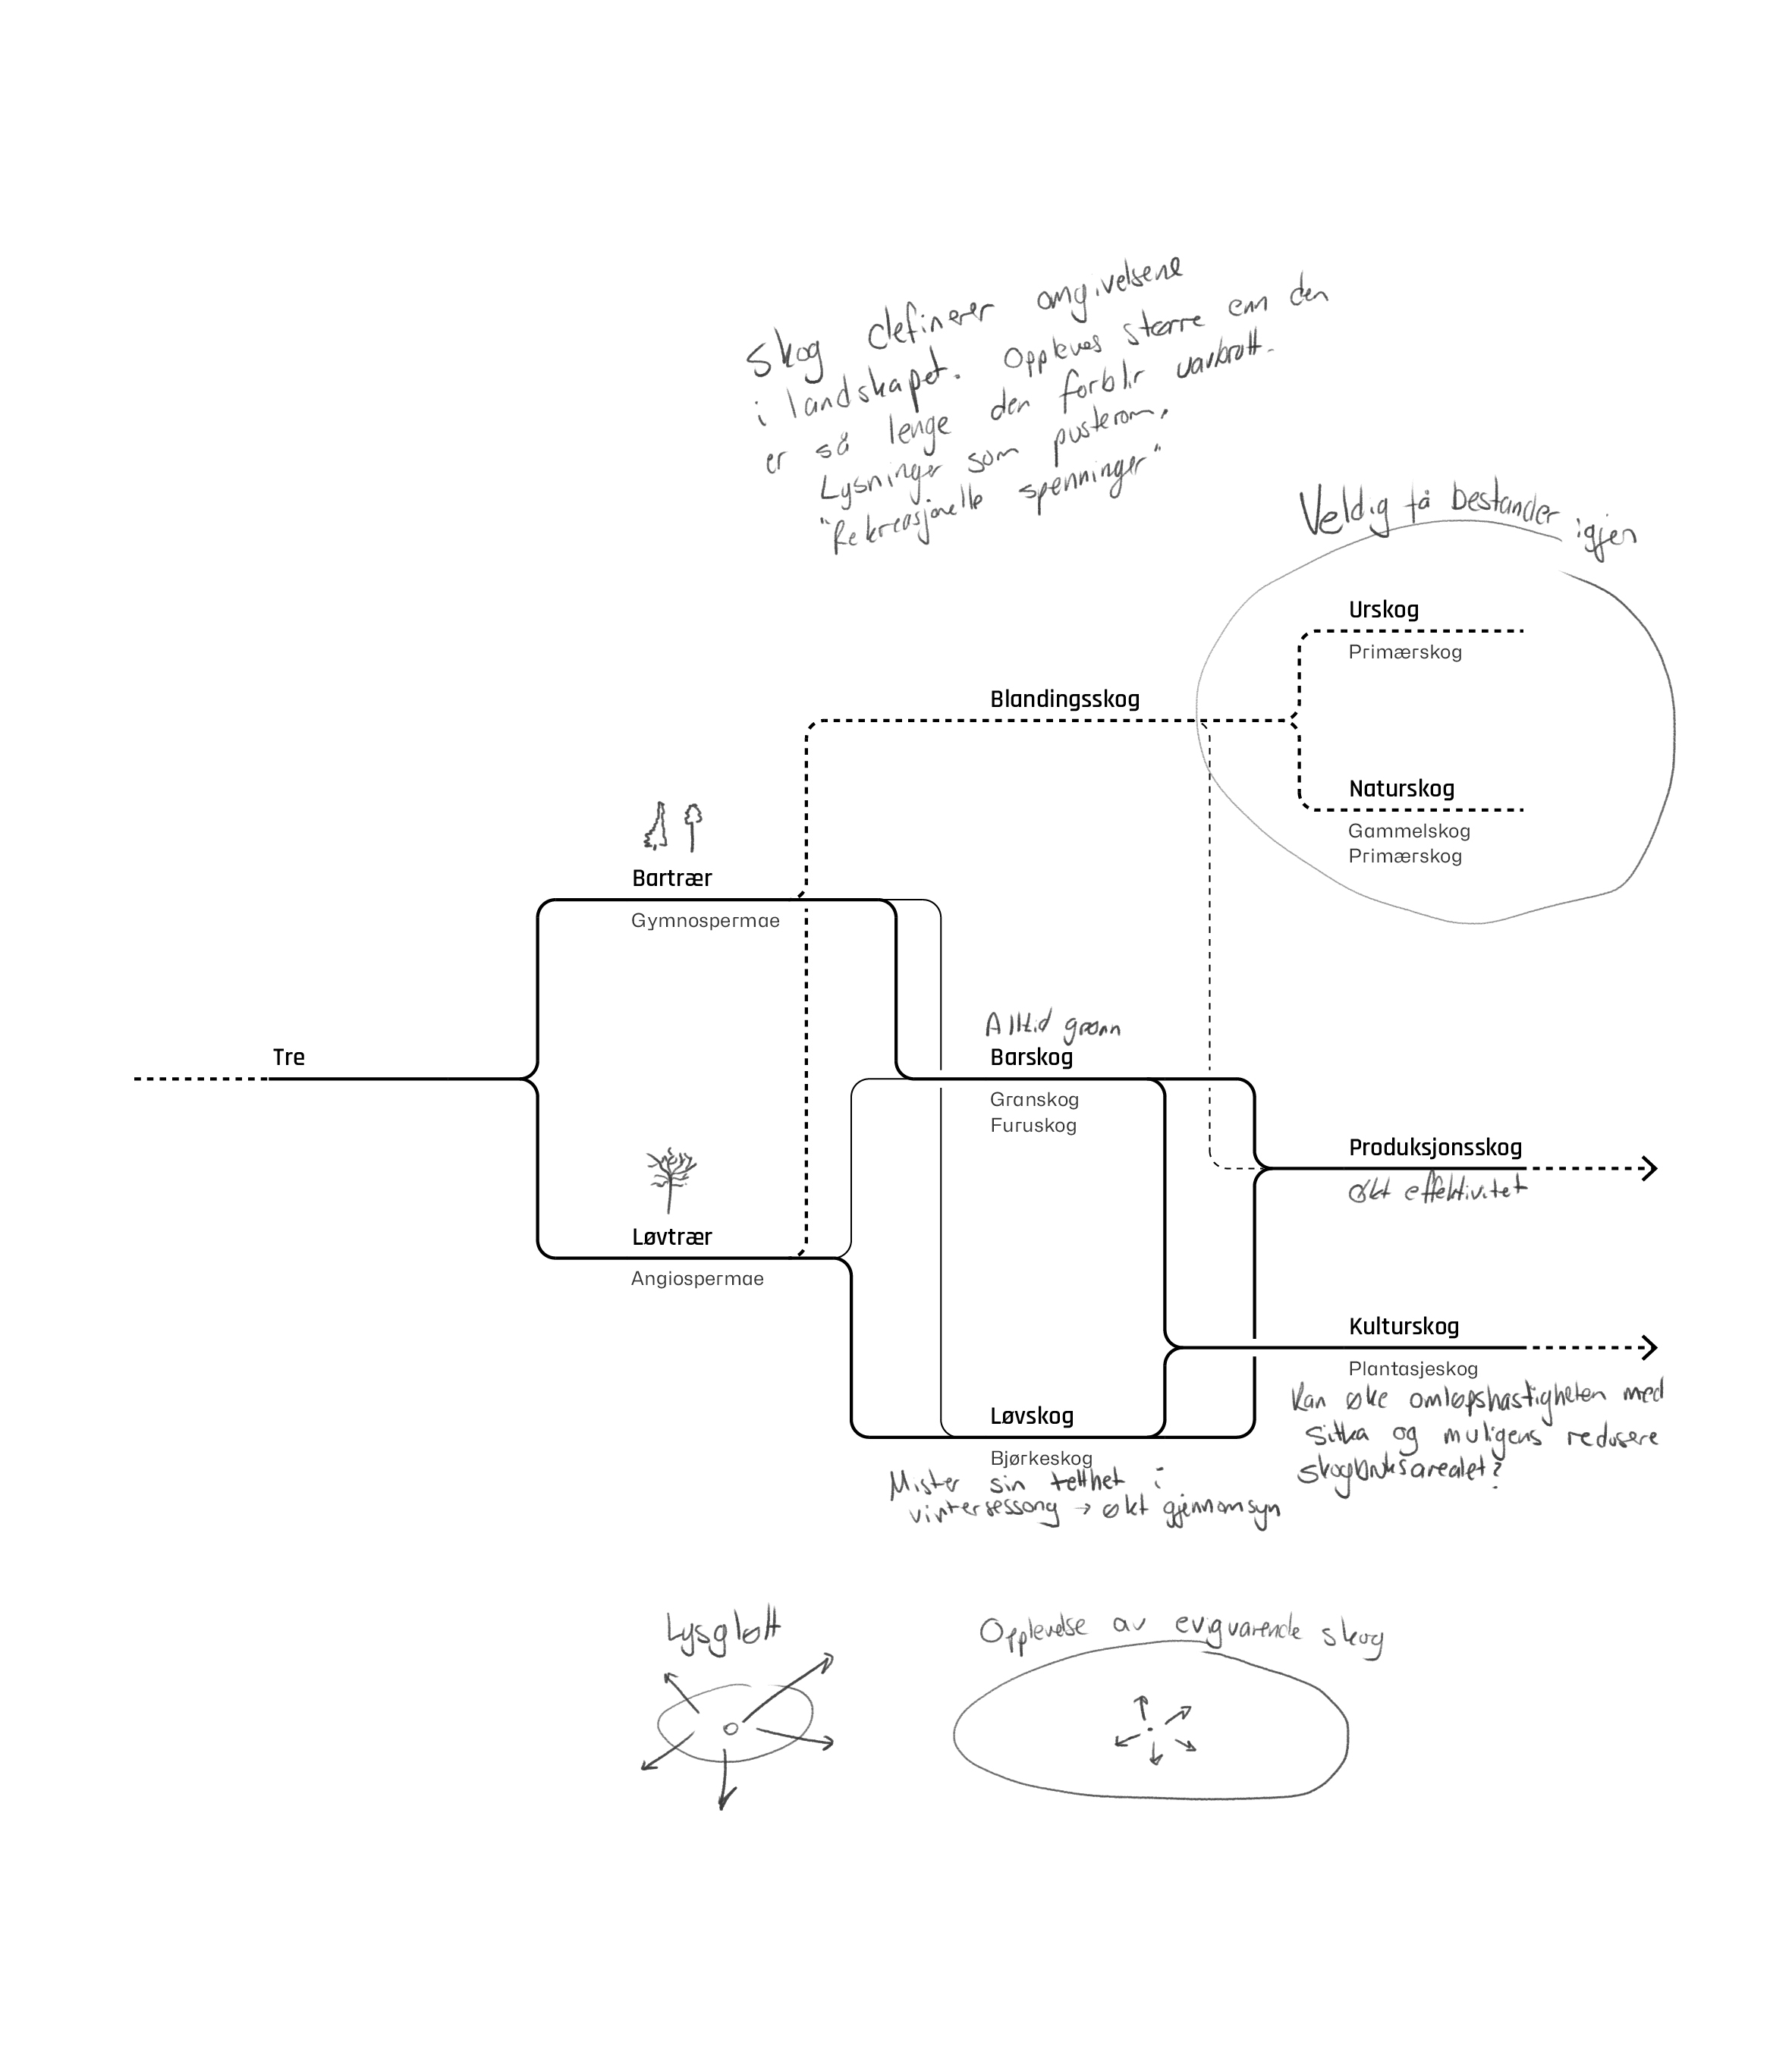 Skog definerer omgivelsene
i landskapet. Oppleves større enn den
er så lenge den forblir uavbrutt.
Lysninger som pusterom,
"Rekreasjonelle spenninger"
Veldig få bestander igjen
Urskog
Primærskog
Blandingsskog
Naturskog
Gammelskog
Primærskog
Bartrær
Gymnospermae
Alltid grønn
Tre
Barskog
Granskog
Furuskog
Produksjonsskog
Økt effektivitet
Løvtrær
Angiospermae
Kulturskog
Plantasjeskog
Kan øke omløpshastigheten med
Sitka og muligens redusere
skogbruksarealet?
Løvskog
Bjørkeskog
Mister sin tetthet i
vintersessong → økt gjennomsyn
Lysgløtt
Opplevelse av evigvarende skog